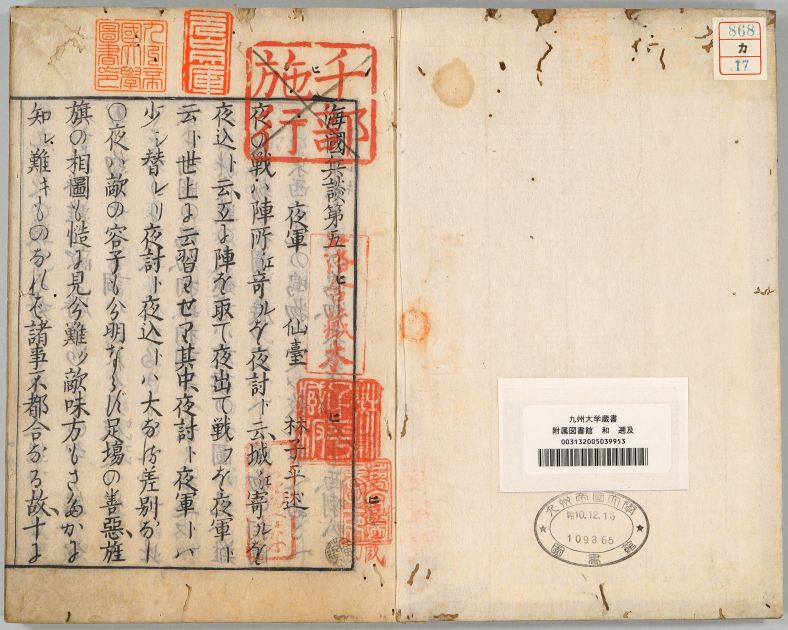 868
カ
17
九州大学蔵書
附属図書館 和 遡及
003132005039953
九州帝國大學
昭10.12.16
109365
圖書館
千部施行
海國兵談第五
夜軍 仙臺 林子平述
夜の戦ハ陣所江寄ルを夜討ト云城江寄ルを
夜込ト云互よ陣を取て夜出て戦フを夜軍ト
云ト世上よ云習ワセリ其中夜討ト夜軍トハ
少シ替レリ夜討ト夜込トハ大なる差別なし
○夜ハ敵の容子も分明ならず足場の善惡旌
旗の相圖も慥よ見分難ク敵味方もさだかよ
知レ難キものなれバ諸事不都合なる故十よ